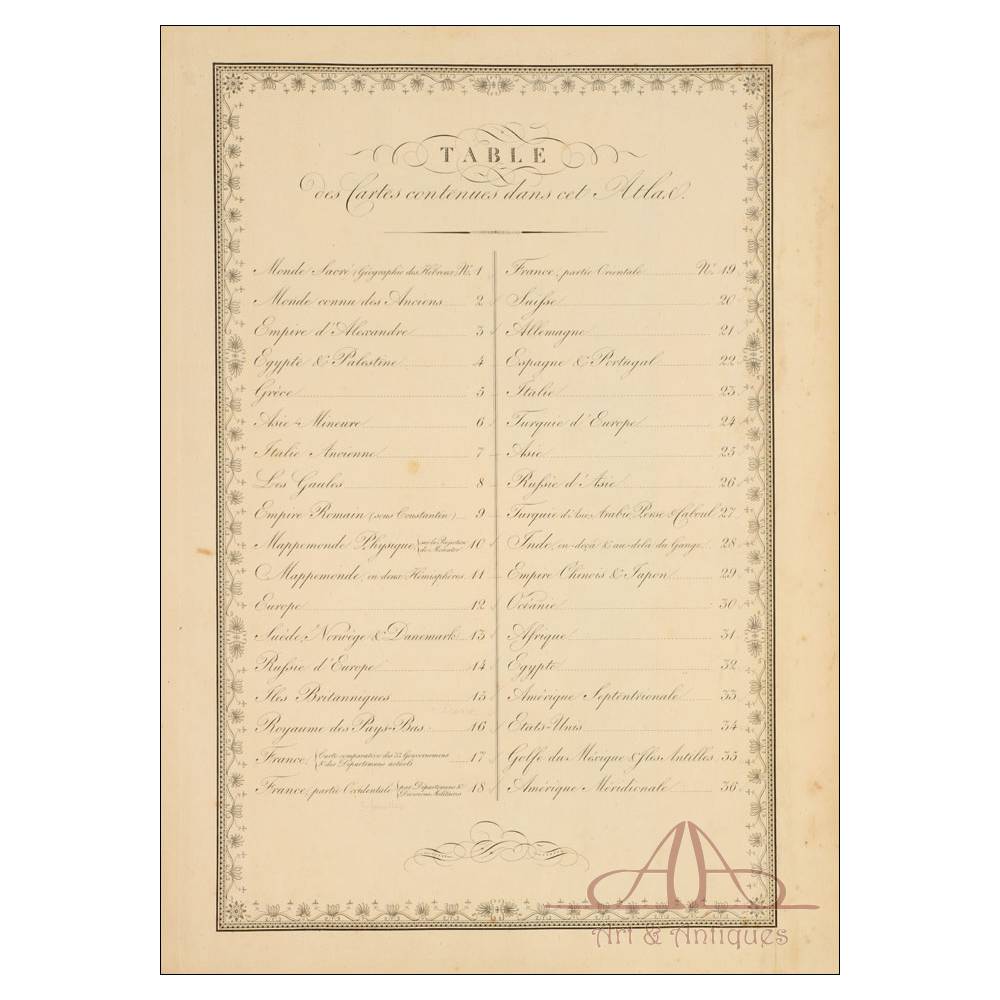 TABLE
des Cartes contenues dans cet Atlas.
Monde Sacré (Géographie des Hébreux) N.° 1
Monde connu des Anciens 2
Empire d'Alexandre 3
Egypte & Palestine 4
Grèce 5
Asie-Mineure 6
Italie Ancienne 7
Les Gaules 8
Empire Romain (sous Constantin) 9
Mappemonde Physique sur la Projection de Mercator 10
Mappemonde, en deux Hémisphères 11
Europe 12
Suède, Norwège & Danemark 13
Russie d'Europe 14
Iles Britanniques 15
Royaume des Pays-Bas 16
France, Carte comparative des 33 Gouvernemens & des Départemens actuels 17
France, partie Occidentale par Départemens & Divisions Militaires 18
France, partie Orientale N.° 19
Suisse 20
Allemagne 21
Espagne & Portugal 22
Italie 23
Turquie d'Europe 24
Asie 25
Russie d'Asie 26
Turquie d'Asie, Arabie, Perse & Caboul 27
Inde, en-deçà & au-delà du Gange 28
Empire Chinois & Japon 29
Océanie 30
Afrique 31
Egypte 32
Amérique Septentrionale 33
Etats-Unis 34
Golfe du Méxique & Iles Antilles 35
Amérique Méridionale 36
Art & Antiques